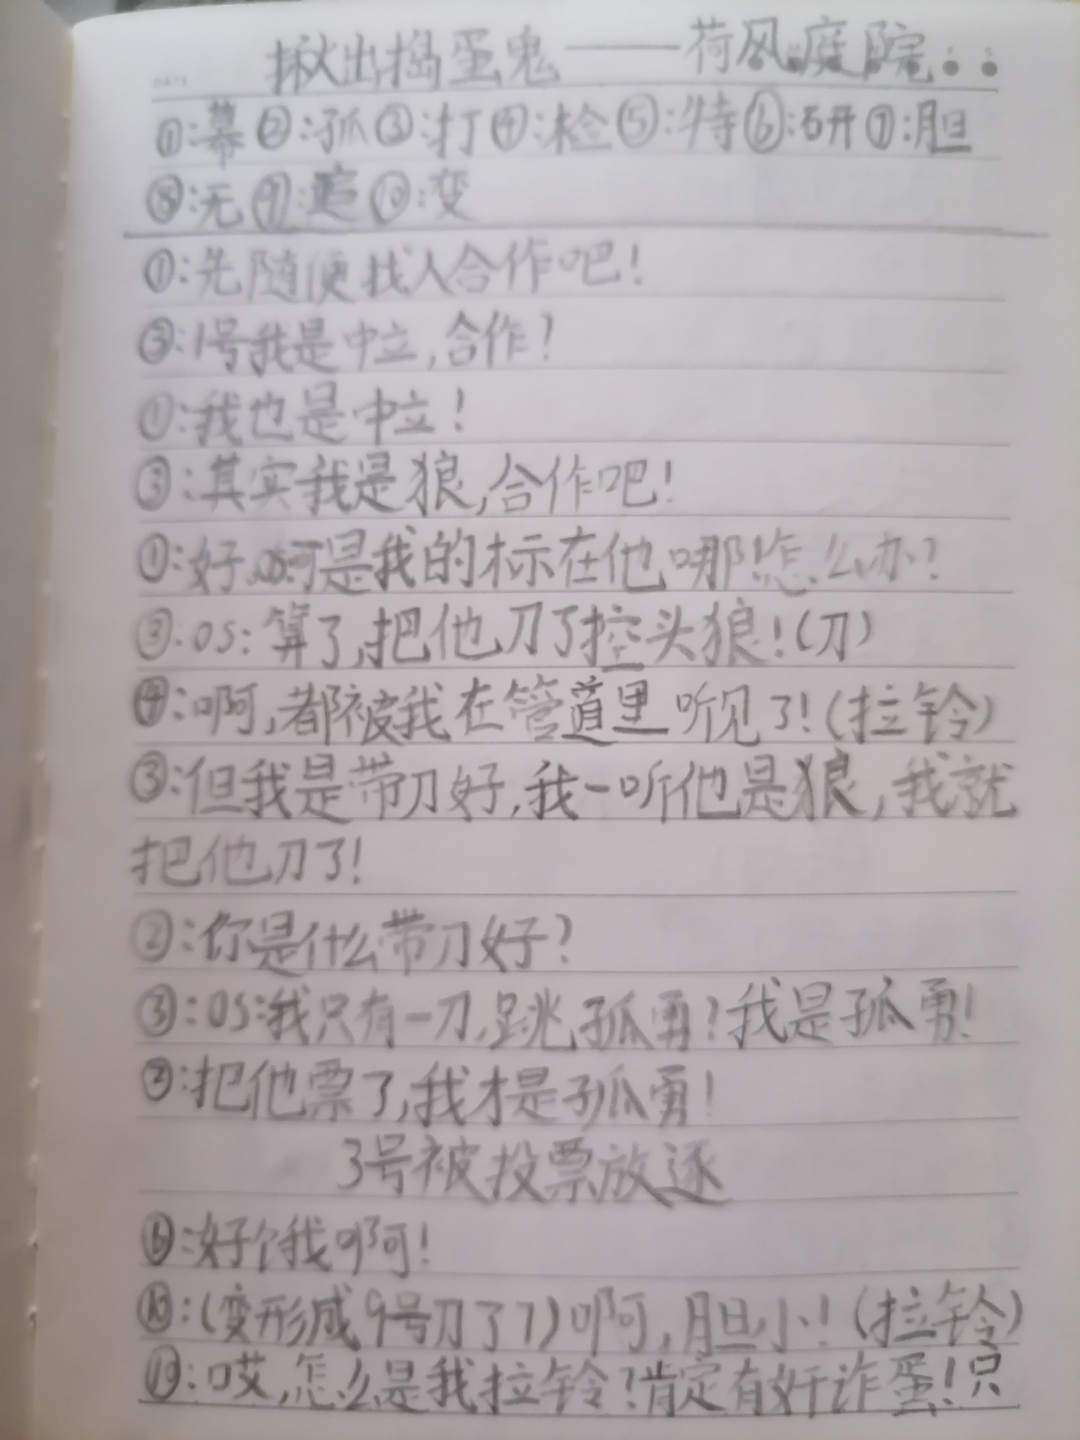 揪出捣蛋鬼——荷风庭院..
①:幕②:孤③:打④:检⑤:特⑥:研⑦:胆
⑧:无⑨:追⑩:变
①:先随便找人合作吧!
③:1号我是中立,合作?
①:我也是中立!
③:其实我是狼,合作吧!
①:好,啊是我的标示在他哪!怎么办?
③:OS:算了,把他刀了控头狼!(刀)
④:啊,都被我在管道里听见了!(拉铃)
③:但我是带刀好,我一听他是狼,我就
把他刀了!
②:你是什么带刀好?
③:OS:我只有一刀,跳孤勇?我是孤勇!
②:把他票了,我才是孤勇!
3号被投票放逐
⑥:好饿我啊!
⑩:(变形成9号刀了7)啊,胆小!(拉铃)
:哎,怎么是我拉铃?肯定有奸诈蛋!只